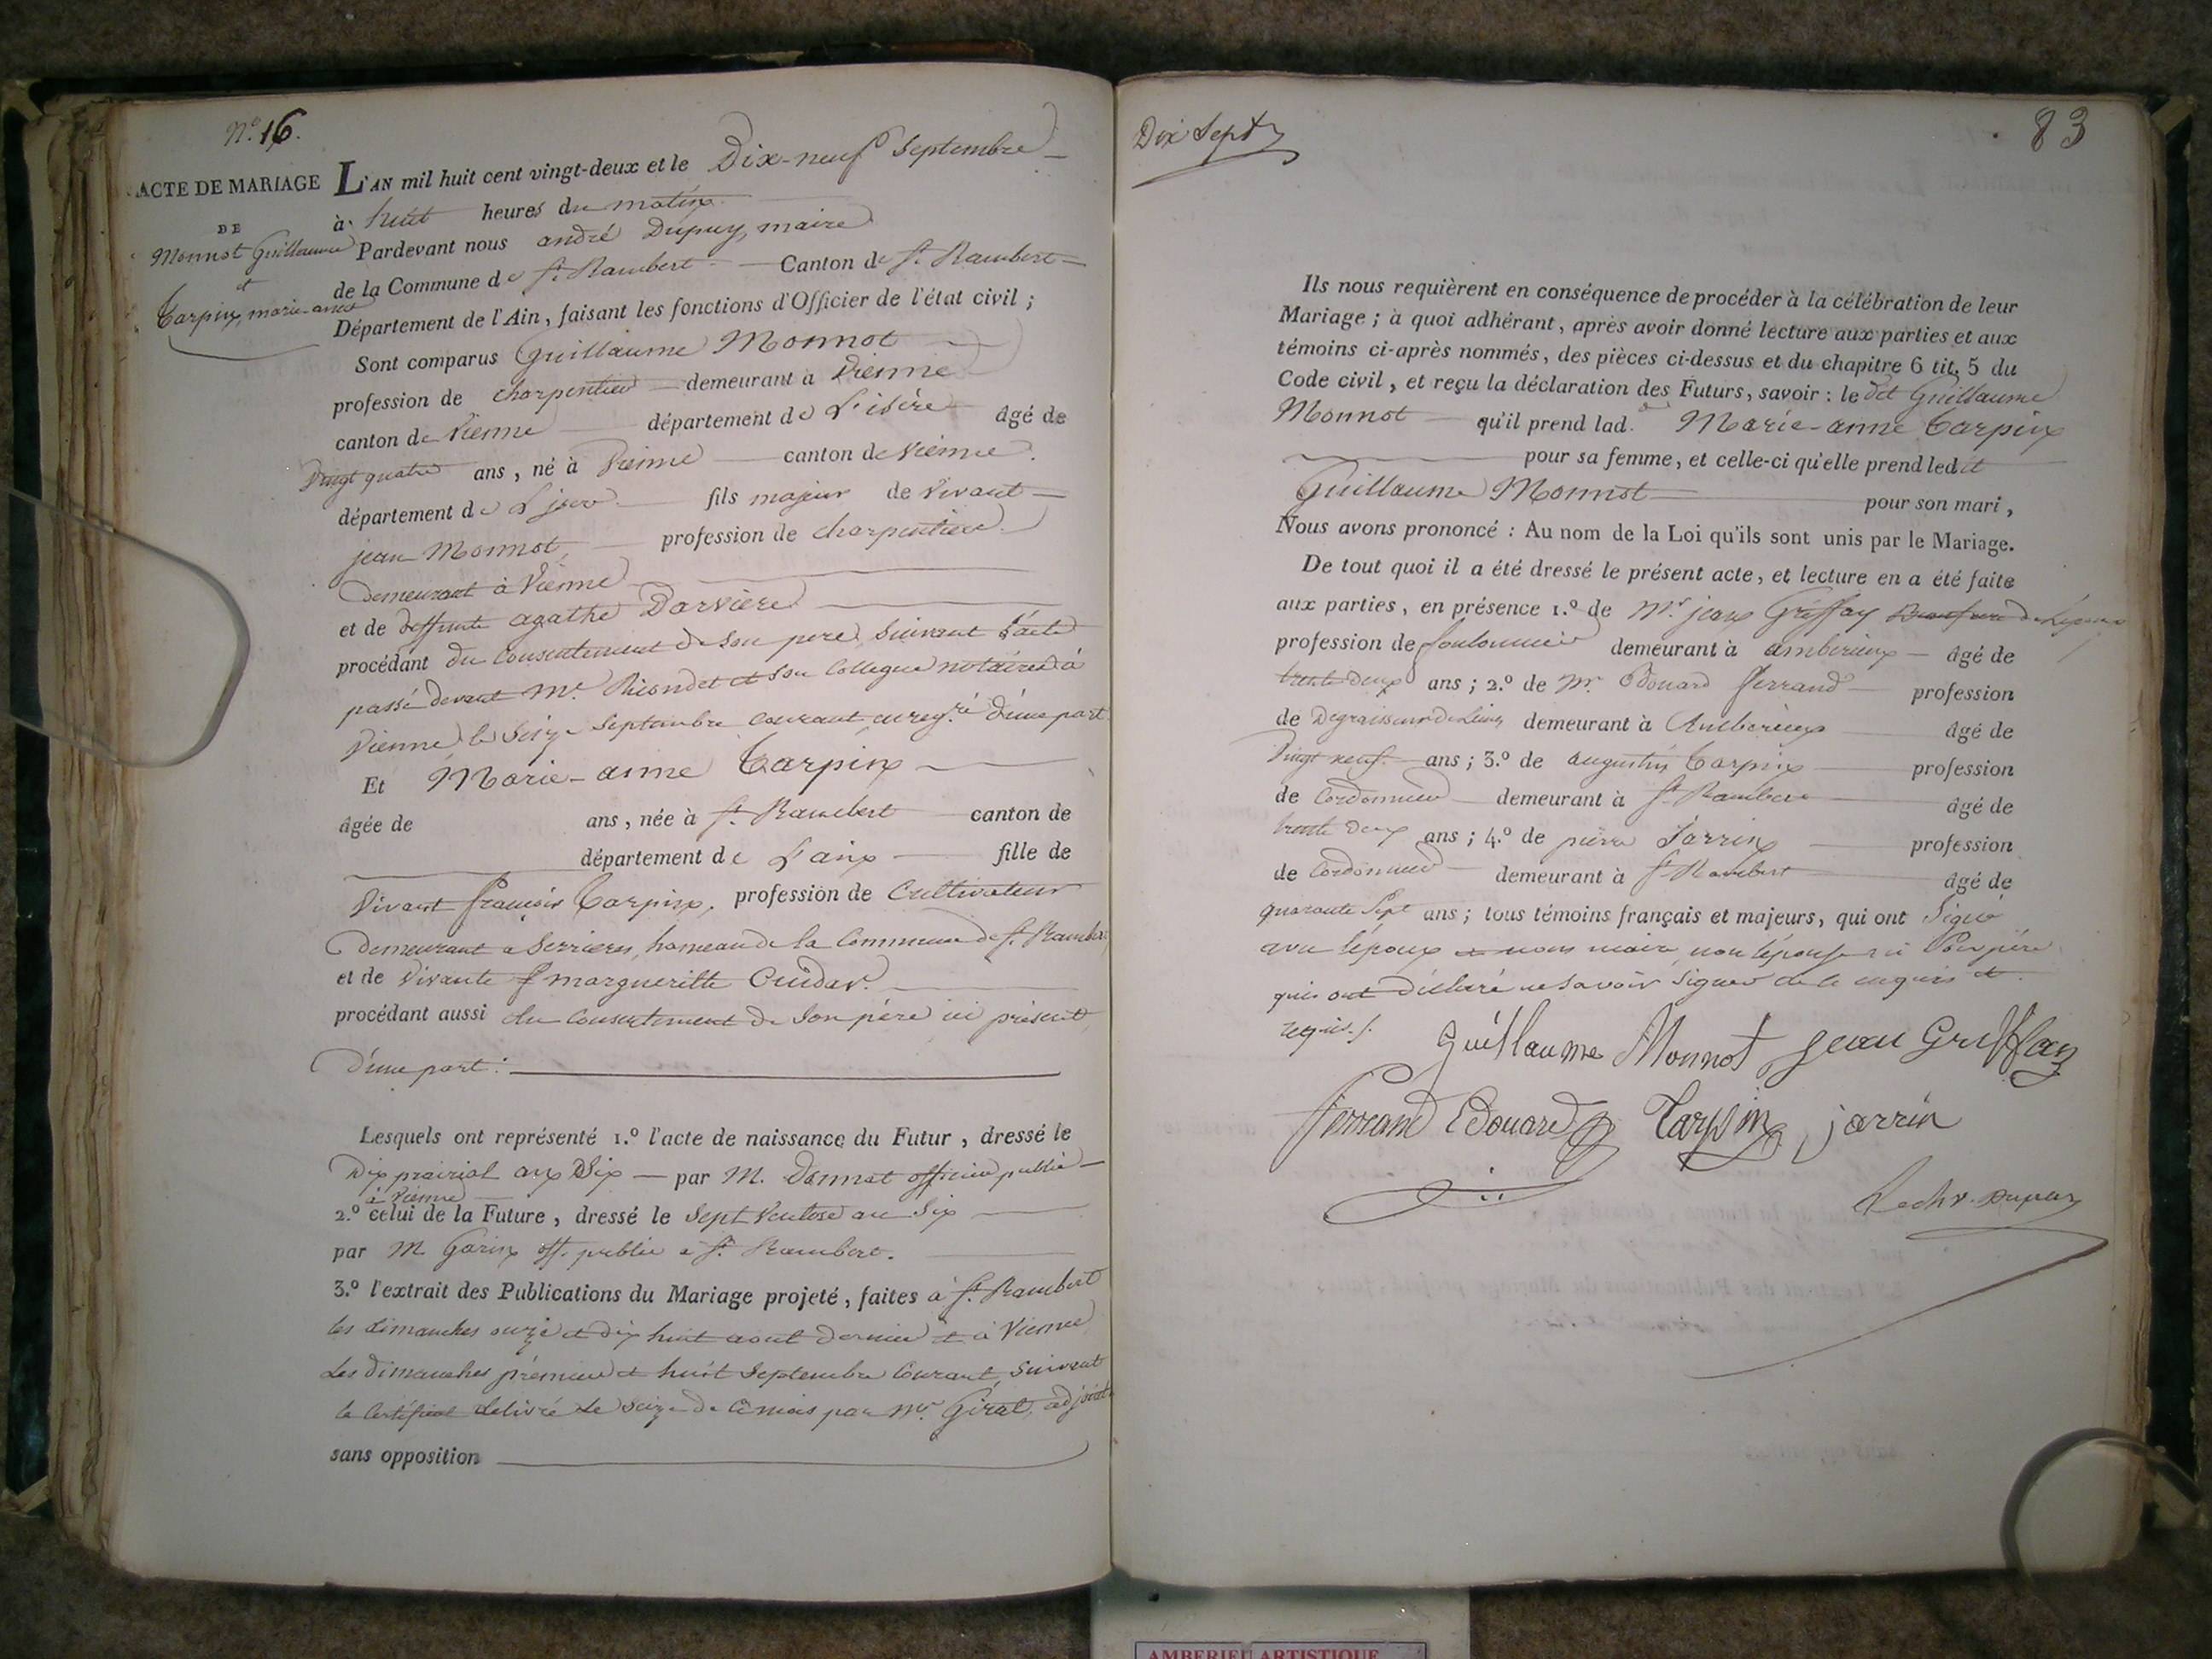 N.o 16.
ACTE DE MARIAGE
DE
Monnot Guillaume
et
Tarpin, marie-anne
L'AN mil huit cent vingt-deux et le Dix-neuf Septembre
à huit heures du matin
Pardevant nous andré Dupuy, maire
de la Commune de St. Rambert Canton de St. Rambert
Département de l'Ain, faisant les fonctions d'Officier de l'état civil ;
Sont comparus Guillaume Monnot
profession de charpentier demeurant à Vienne
canton de Vienne département de L'isère âgé de
Vingt quatre ans, né à Vienne canton de Vienne.
département de fils majeur de vivant
jean Monnot, profession de charpentier
demeurant à Vienne
et de deffunte agathe Darviere
procédant du Consentement de son pere, suivant l'acte
passé devant Me. et son Collegue notaires à
Vienne le Seize Septembre courant enregré. d'une part
Et Marie-anne Tarpin
âgée de ans, née à St. Rambert canton de
département de L'ain fille de
Vivant françois Tarpin, profession de Cultivateur
demeurant à Serrieres, hameau de la Commune de St. Rambert
et de Vivante margueritte
procédant aussi du Consentement de Son père ici présent,
d'une part :
Lesquels ont représenté 1.o l'acte de naissance du Futur, dressé le
Dix prairial an Six par M. officier public
à Vienne
2.o celui de la Future, dressé le Sept Ventose an Six
par M Garin off. public à St. Rambert.
3.o l'extrait des Publications du Mariage projeté, faites à St. Rambert
les dimanches onze et dix huit aout dernier et à Vienne
Les dimanches premier et huit Septembre Courant, Suivant
le Certificat delivré le Seize de ce mois par Mr. Girat, adjoint
sans opposition
Dix Sept
83
Ils nous requièrent en conséquence de procéder à la célébration de leur
Mariage ; à quoi adhérant, après avoir donné lecture aux parties et aux
témoins ci-après nommés, des pièces ci-dessus et du chapitre 6 tit. 5 du
Code civil, et reçu la déclaration des Futurs, savoir : le dit Guillaume
Monnot qu'il prend lad. Marie-anne Tarpin
pour sa femme, et celle-ci qu'elle prend ledit
Guillaume Monnot pour son mari,
Nous avons prononcé : Au nom de la Loi qu'ils sont unis par le Mariage.
De tout quoi il a été dressé le présent acte, et lecture en a été faite
aux parties, en présence 1.o de Mr. jean Griffay
profession de demeurant à ambérieux âgé de
trente deux ans ; 2.o de Mr. Edouard ferrand profession
de Degraisseur de Laines demeurant à Ambérieux âgé de
Vingt neuf ans ; 3.o de augustin Tarpin profession
de Cordonnier demeurant à St. Rambert âgé de
trente deux ans ; 4.o de pierre Jarrin profession
de Cordonnier demeurant à St. Rambert âgé de
quarante Sept ans ; tous témoins français et majeurs, qui ont Signé
avec l'époux et nous maire, non l'épouse ni Son père
qui ont déclaré ne savoir Signer de ce enquis et
requis./.
Guillaume Monnot jean Griffay
ferrand Edouard Tarpin jarrin
Dupuy
AMBERIEU ARTISTIQUE